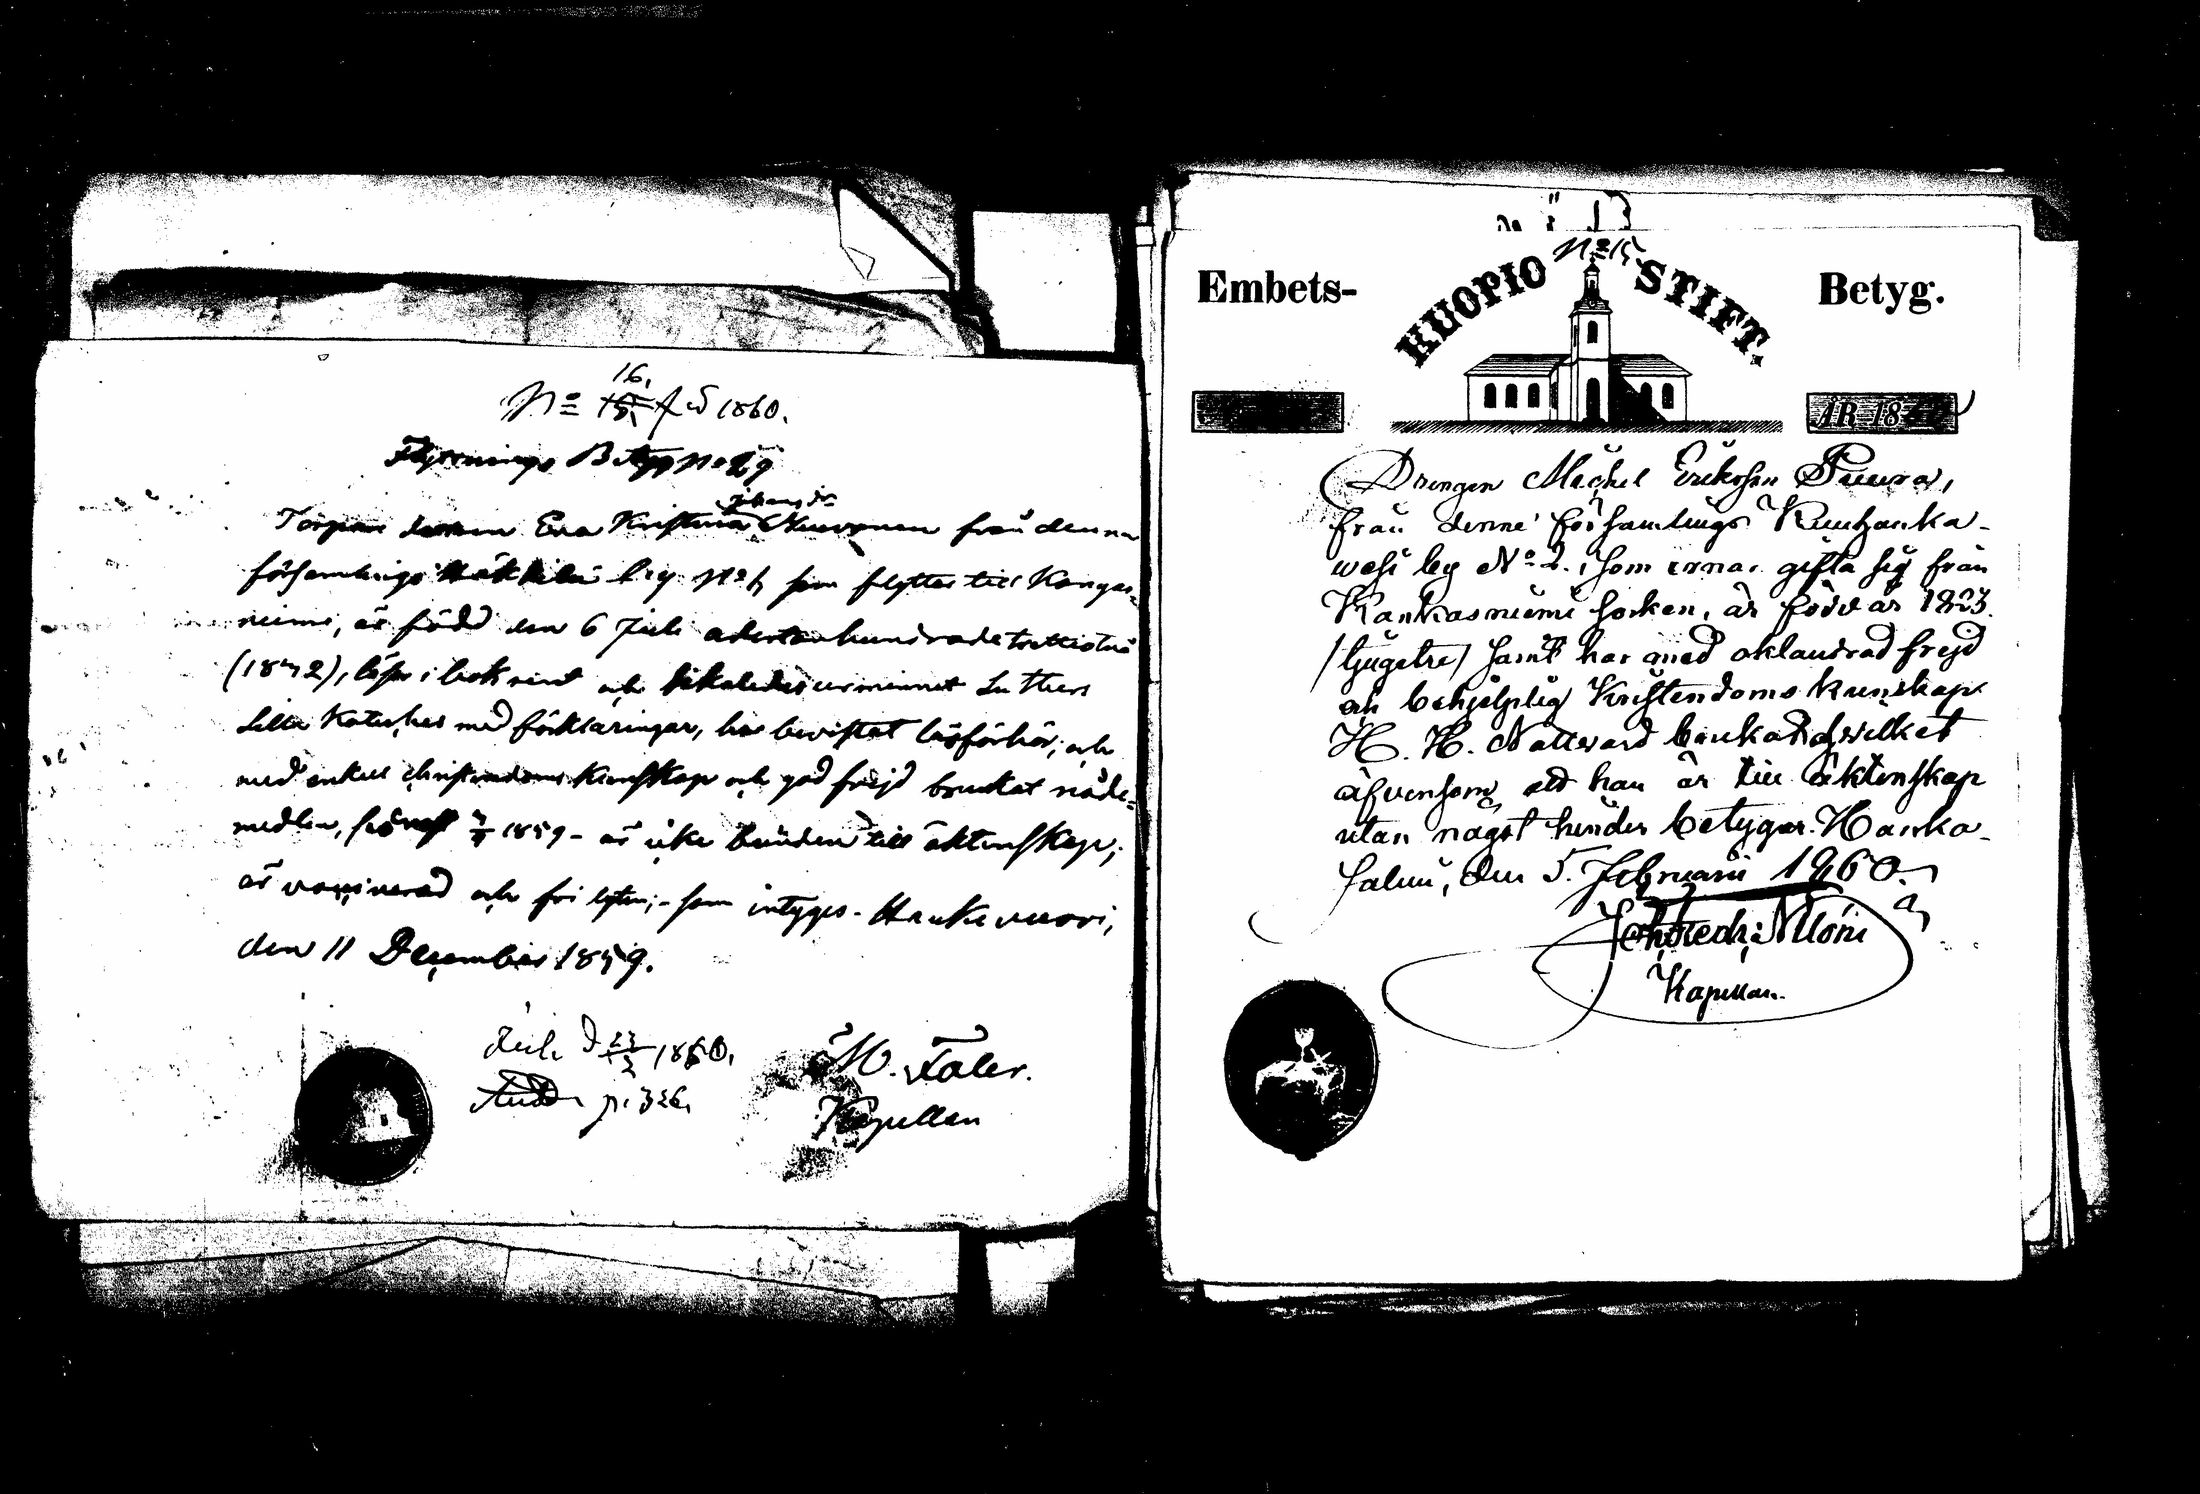 16.
No 15. f. å 1860.
Flyttnings Betyg No 29
Johansdr
Torpare dottern Eva Kristina från denna
församlings by No 6 som flyttar till Kangas-
niemi, är född den 6 Juli adertonhundrade trettiotvå
(1832), läser i bok rent och likaledes ur minnet Luthers
Lilla Kateches med förklaringar, har bevistat läsförhör, och
med enkel christendoms kunskap och god frejd brukat nåde-
medlen, sednast 1859 - är icke bunden till äktenskap;
är vaccinerad och fri lyten; - som intygas - Haukivuori,
den 11 December 1859.
d 23/3 1860.
p. 326.
M. Faler.
Kapellan
No 15
Embets- KUOPIO STIFT. Betyg.
ÅR 1860
Drengen Michel Eriksson Puura,
från denne församlings Kuuhanka-
wesi by No 2. som ernar gifta sig från
Kankasniemi socken, är född år 1823
/tjugetre/ samt har med oklandrad frejd
och behjelplig Kristendoms kunskap
H. H. Nattvard brukat hvilket
äfvensom att han är till äktenskap
utan något hinder betygar. Hanka-
salmi, den 5. Februarii 1860.
Joh. Fredr.
Kapellan.